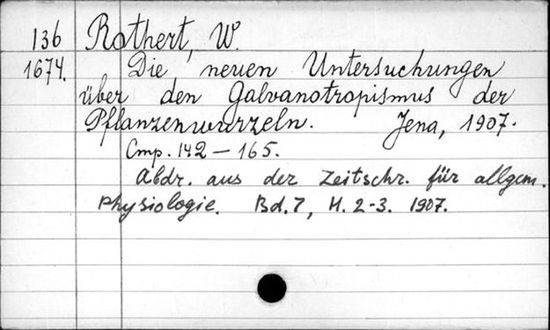 136 Rothert, W.
1674. Die neuen Untersuchungen
über den Galvanotropismus der
Pflanzenwurzeln. Jena, 1907.
Cmp. 142 – 165.
Abdr. aus der Zeitschr. für allgem.
Physiologie. Bd. 7, H. 2-3. 1907.